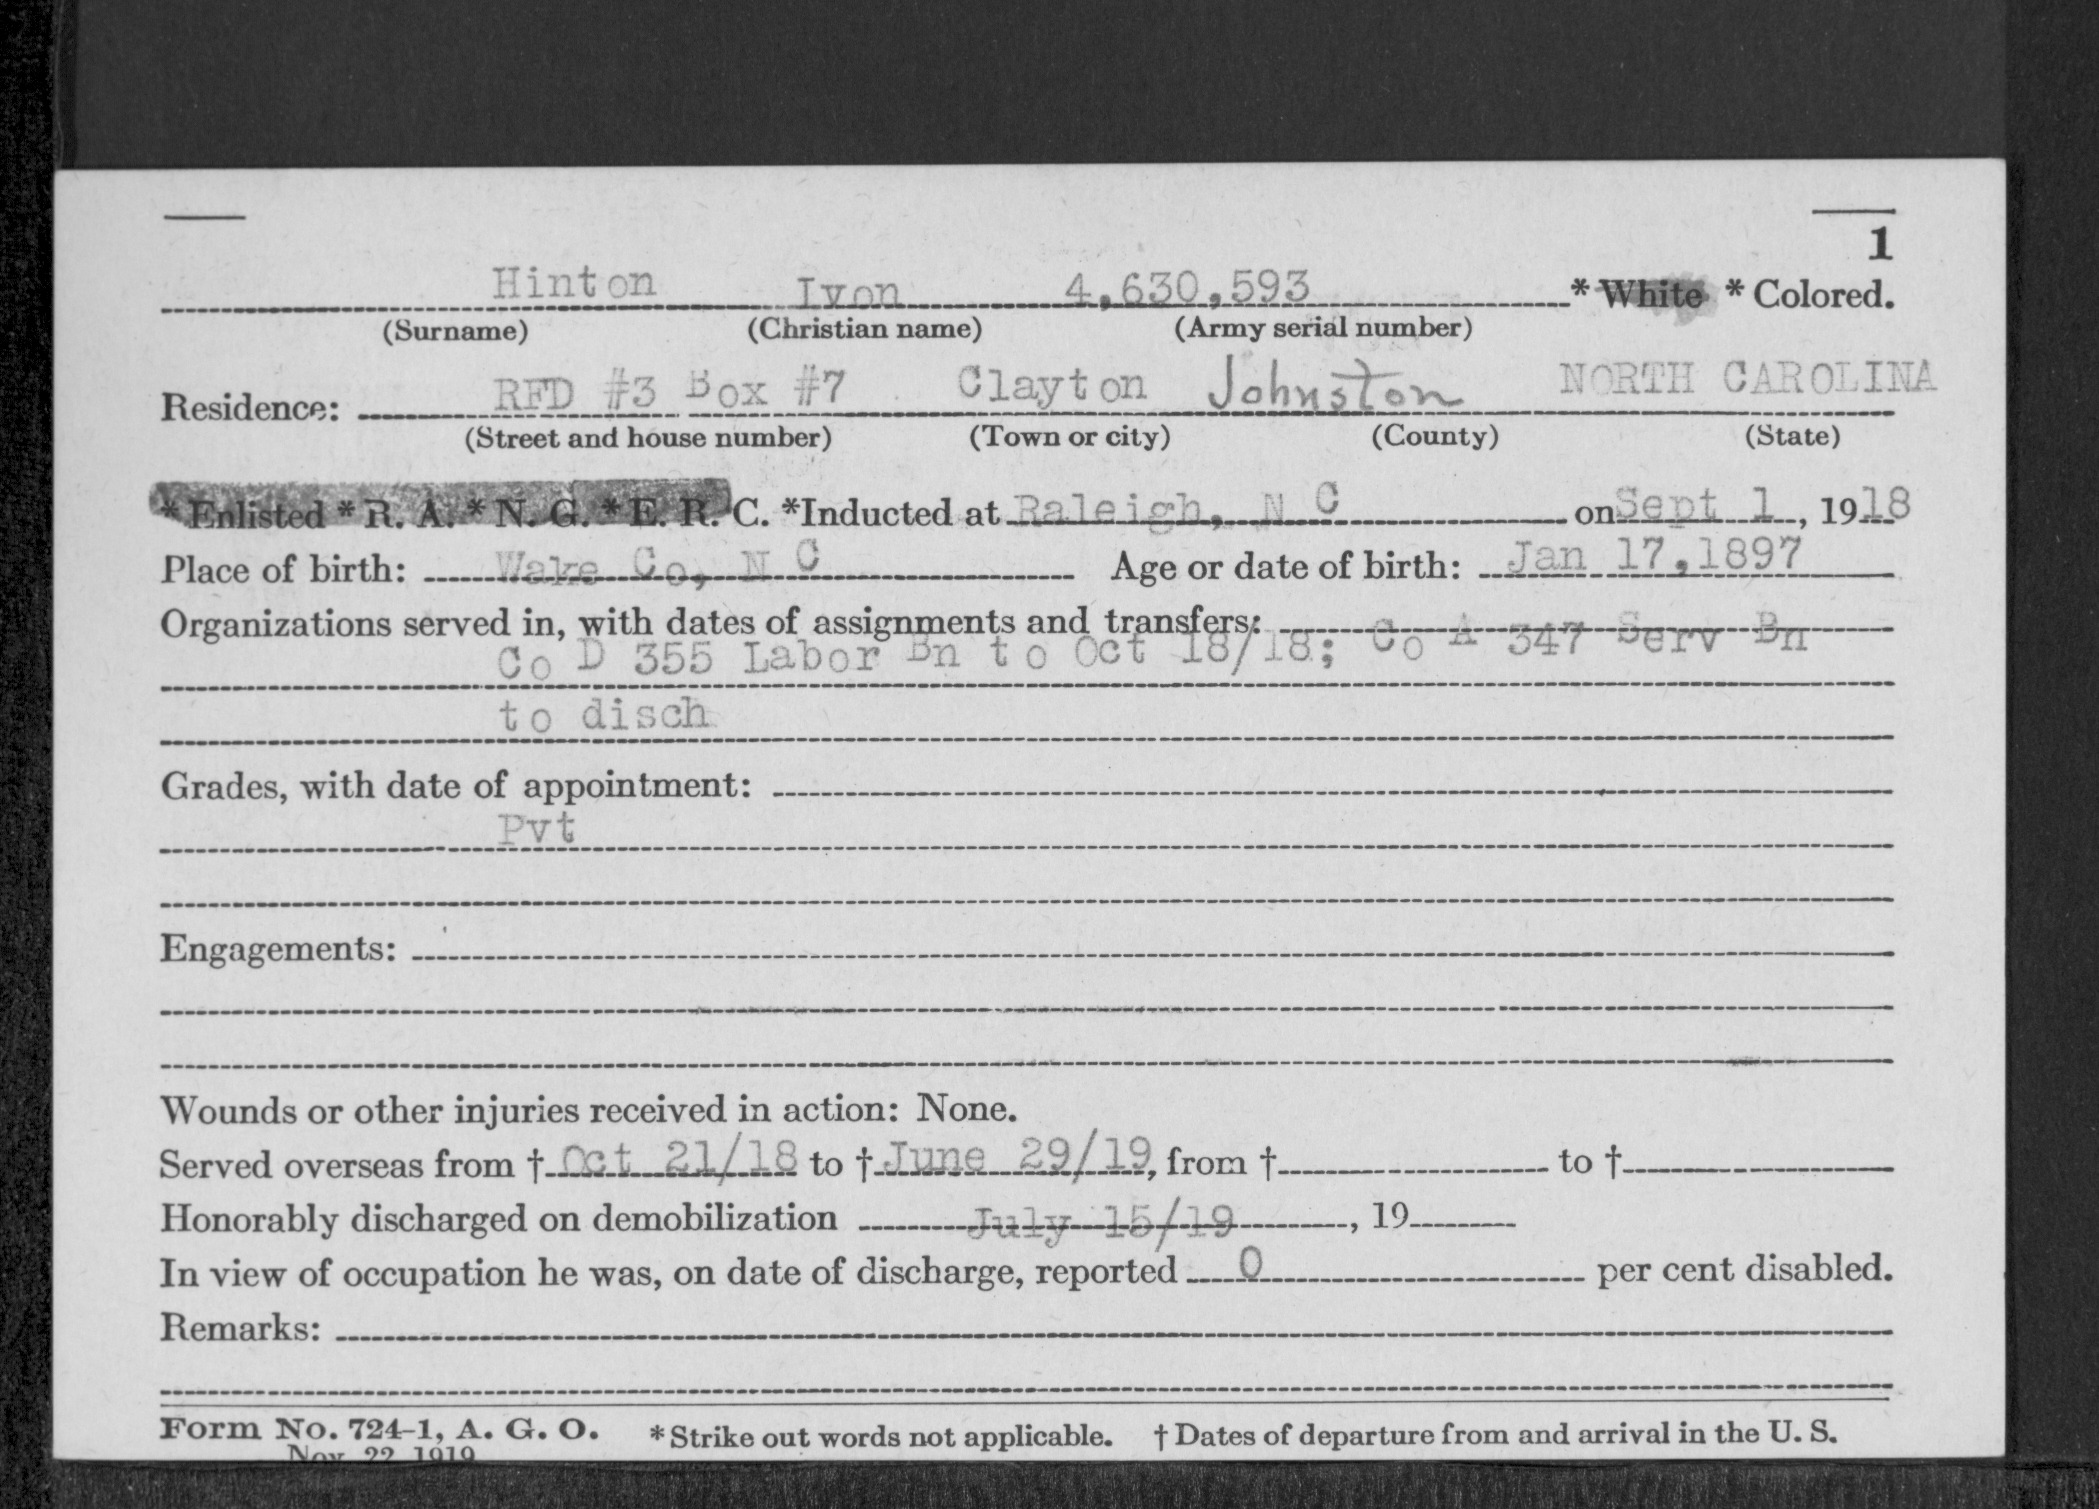 1
Hinton Ivon 4,630,593 * White * Colored.
(Surname) (Christian name) (Army serial number)
Residence: RFD #3 Box #7 Clayton Johnston NORTH CAROLINA
(Street and house number) (Town or city) (County) (State)
* Enlisted * R. A. * N. G. * E. R. C. *Inducted at Raleigh, N C on Sept 1, 1918
Place of birth: Wake Co, N C Age or date of birth: Jan 17, 1897
Organizations served in, with dates of assignments and transfers:
Co D 355 Labor Bn to Oct 18/18; Co A 347 Serv Bn
to disch
Grades, with date of appointment:
Pvt
Engagements:
Wounds or other injuries received in action: None.
Served overseas from † Oct 21/18 to † June 29/19, from † to †
Honorably discharged on demobilization July 15/19, 19
In view of occupation he was, on date of discharge, reported 0 per cent disabled.
Remarks:
Form No. 724-1, A. G. O. * Strike out words not applicable. † Dates of departure from and arrival in the U. S.
Nov. 22, 1919